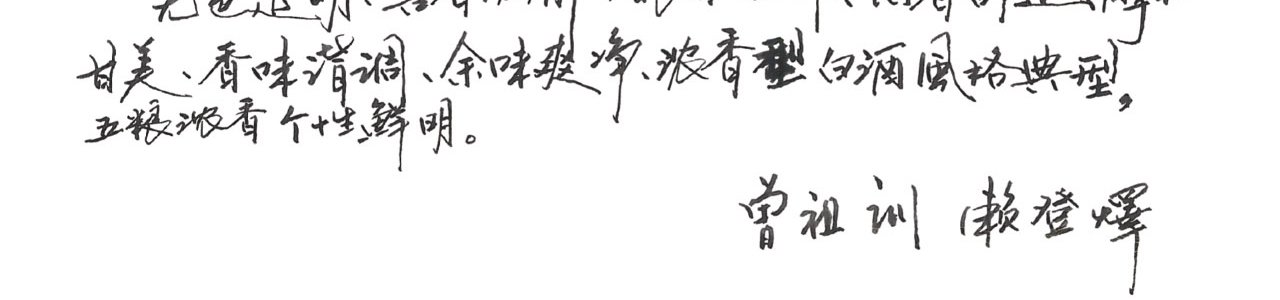 无色透明、
甘美、香味谐调、余味爽净、浓香型白酒風格典型,
五粮浓香个性鲜明。
曾祖训 赖登燡